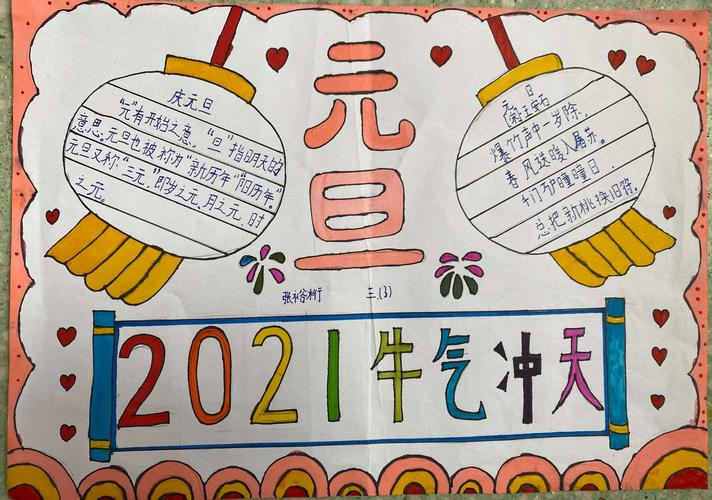 元旦
庆元旦
"元"有开始之意，"旦"指明天的
意思.元旦也被称为"新历年""阳历年"。
元旦又称"三元,"即岁之元、月之元、时
之元。
元 日
[宋]王安石
爆竹声中一岁除,
春风送暖入屠苏。
千门万户曈曈日.
总把新桃换旧符.
张 三.(3)
2021牛气冲天